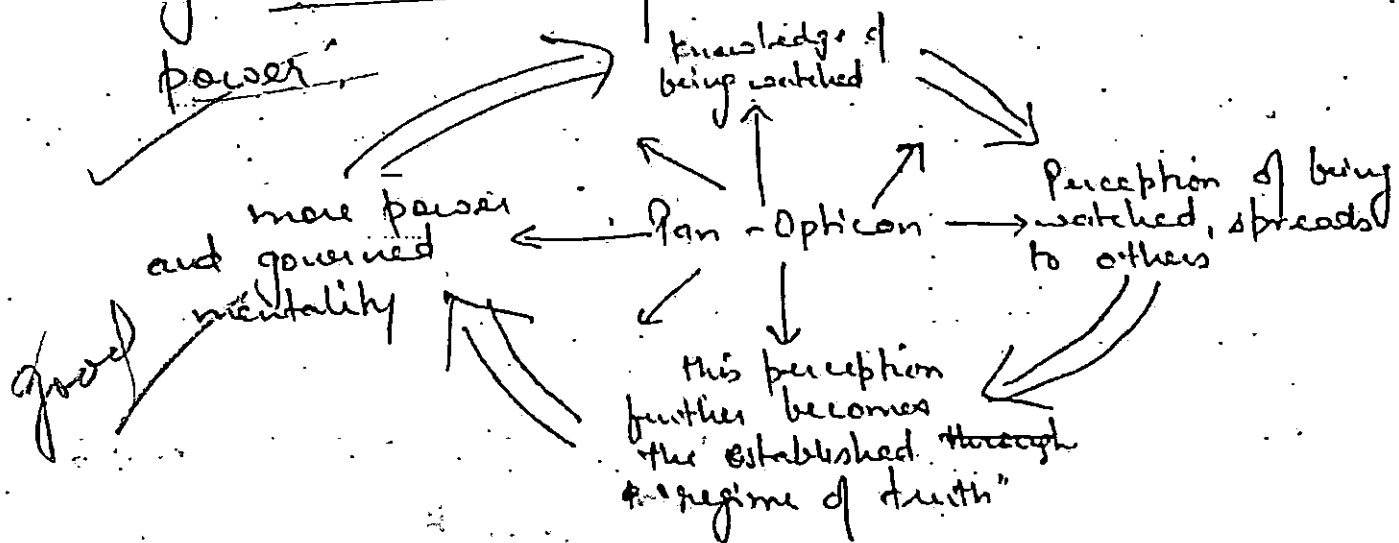 power"
knowledge of
being watched
Perception of being
watched, spreads
to others
more power
and governed
mentality
Pan-Opticon
good
this perception
further becomes
the established through
"regime of truth"